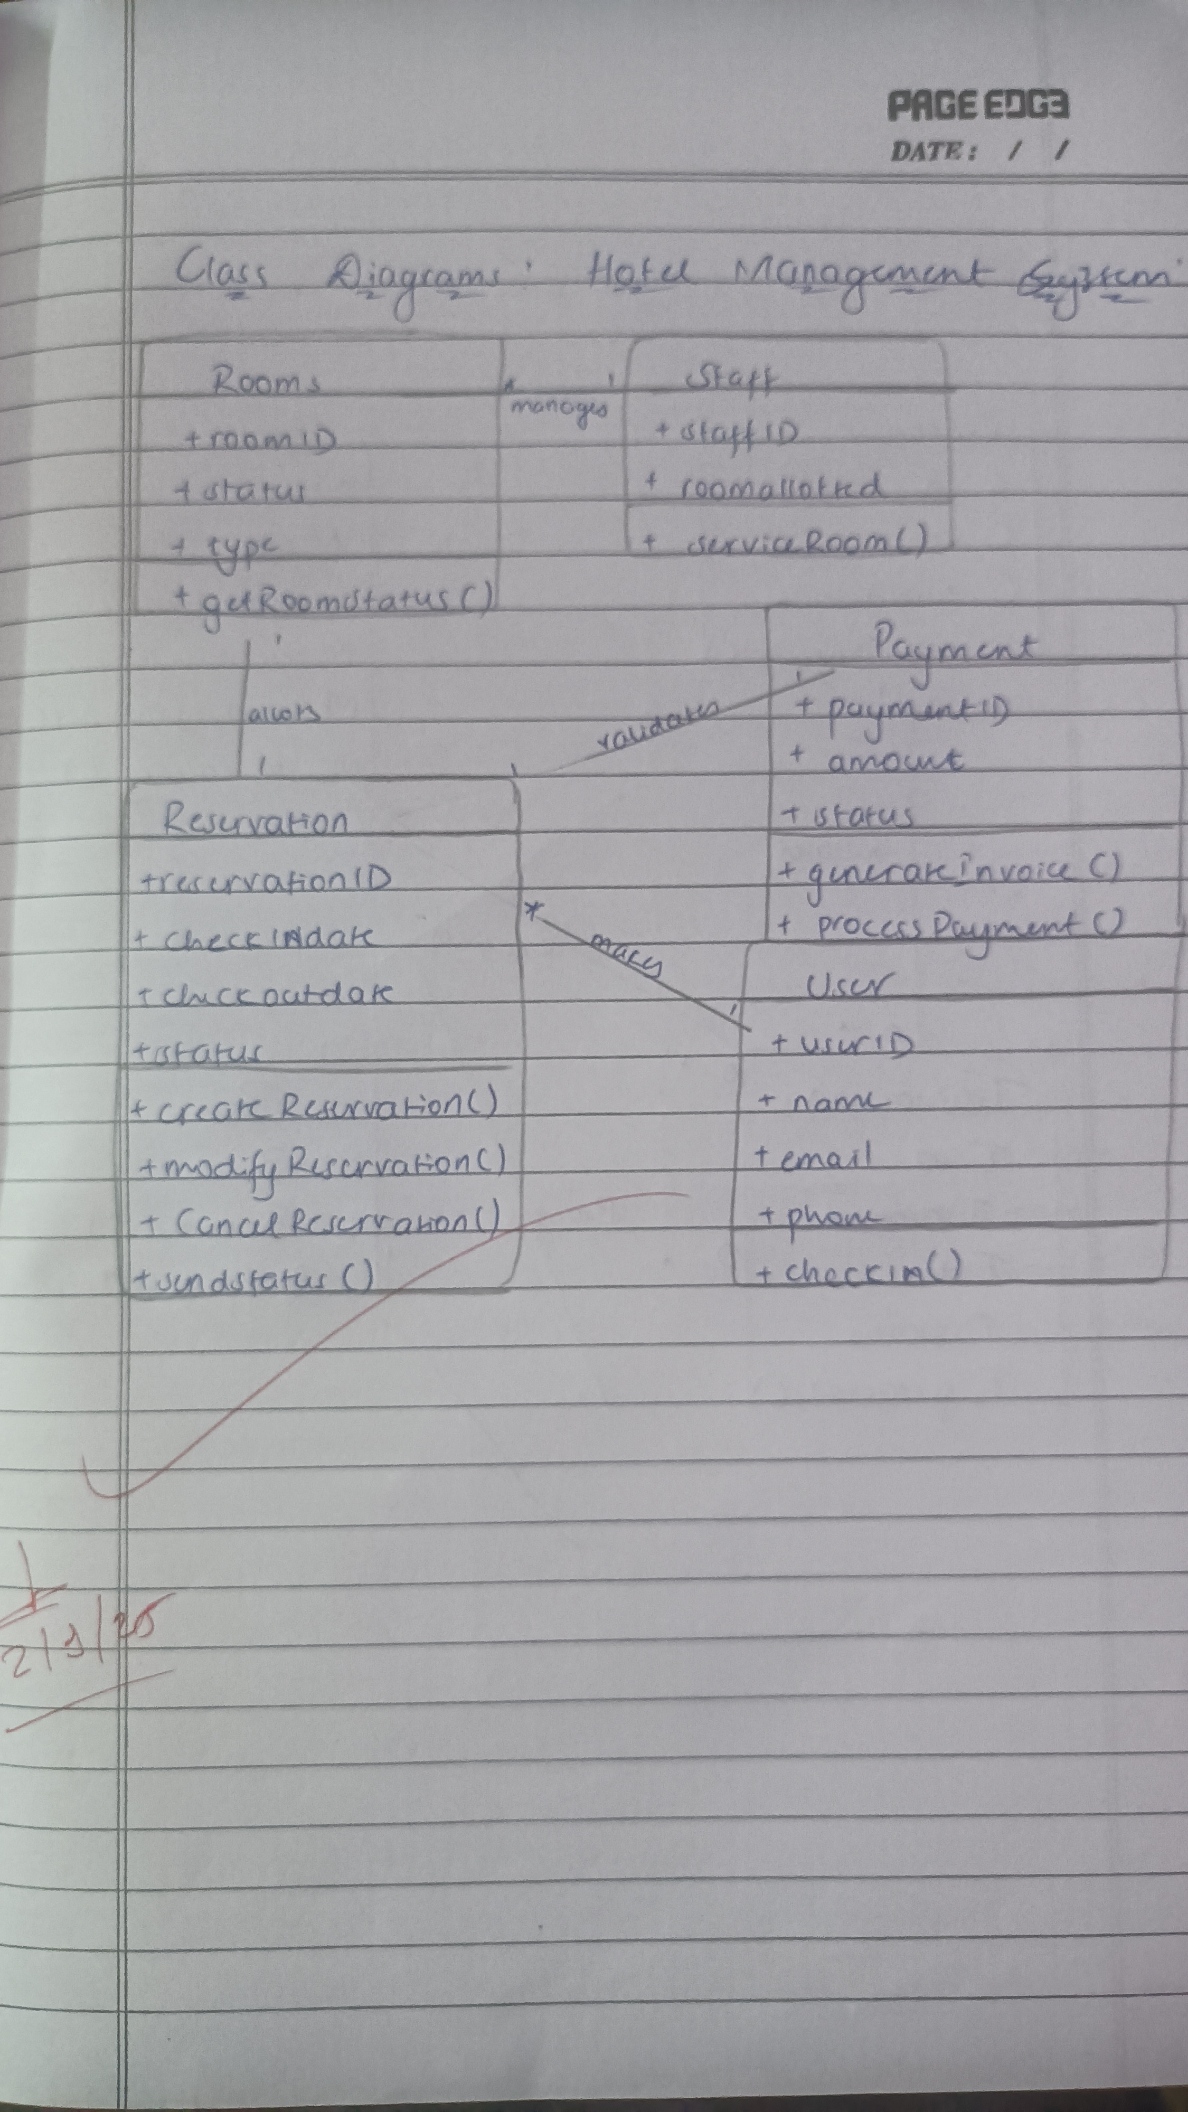 PAGE EDGE
DATE: / /
Class Diagrams: Hotel Management System
Rooms
+ roomID
+ status
+ type
+ getRoomstatus()
* 1
manages
Staff
+ staffID
+ roomallotted
+ serviceRoom()
1
allots
1
Payment
+ paymentID
+ amount
+ status
+ generateinvoice()
+ processPayment()
1
validates
1
Reservation
+reservationID
+ checkINdate
+ checkoutdate
+status
+ createReservation()
+modifyReservation()
+ CancelReservation()
+sendstatus()
*
makes
1
User
+ userID
+ name
+ email
+ phone
+ checkin()
2/9/25